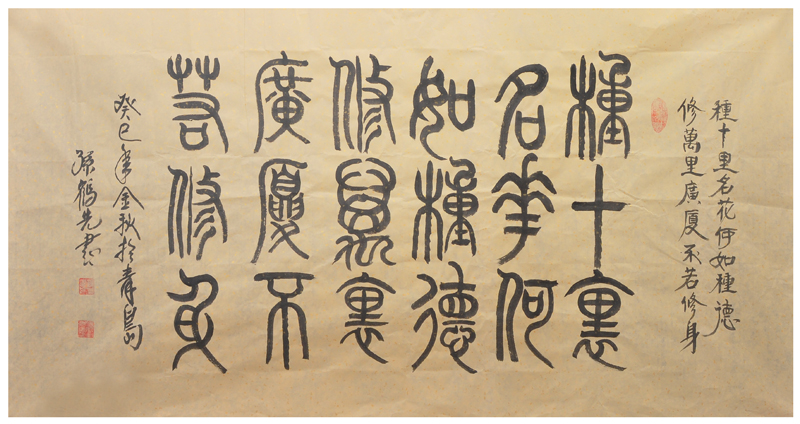 種十里名花何如種德
修萬里廣厦不若修身
種十裏
名華何
如種德
修萬裏
廣廈不
若修身
癸巳年金秋於青島
孫鶴先書